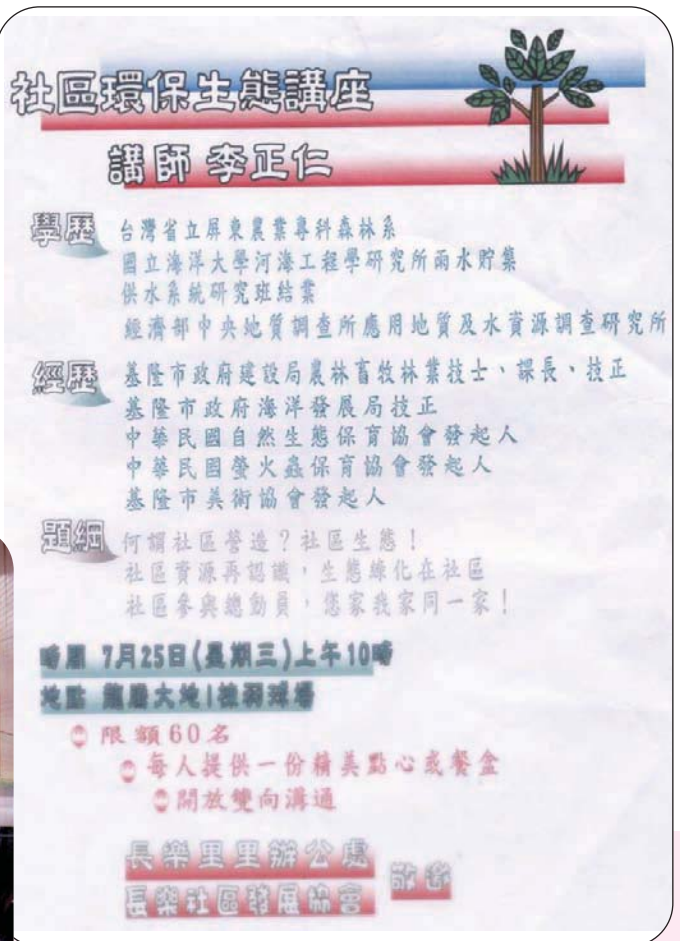 社區環保生態講座
講師 李正仁
學歷 台灣省立屏東農業專科森林系
國立海洋大學河海工程學研究所雨水貯集
供水系統研究班結業
經濟部中央地質調查所應用地質及水資源調查研究所
經歷 基隆市政府建設局農林畜牧林業技士、課長、技正
基隆市政府海洋發展局技正
中華民國自然生態保育協會發起人
中華民國螢火蟲保育協會發起人
基隆市美術協會發起人
題綱 何謂社區營造？社區生態！
社區資源再認識，生態綠化在社區
社區參與總動員，您家我家同一家！
時間 7月25日(星期三)上午10時
地點 大地1棟羽球場
限額60名
每人提供一份精美點心或餐盒
開放雙向溝通
長樂里里辦公處
長樂社區發展協會 敬邀